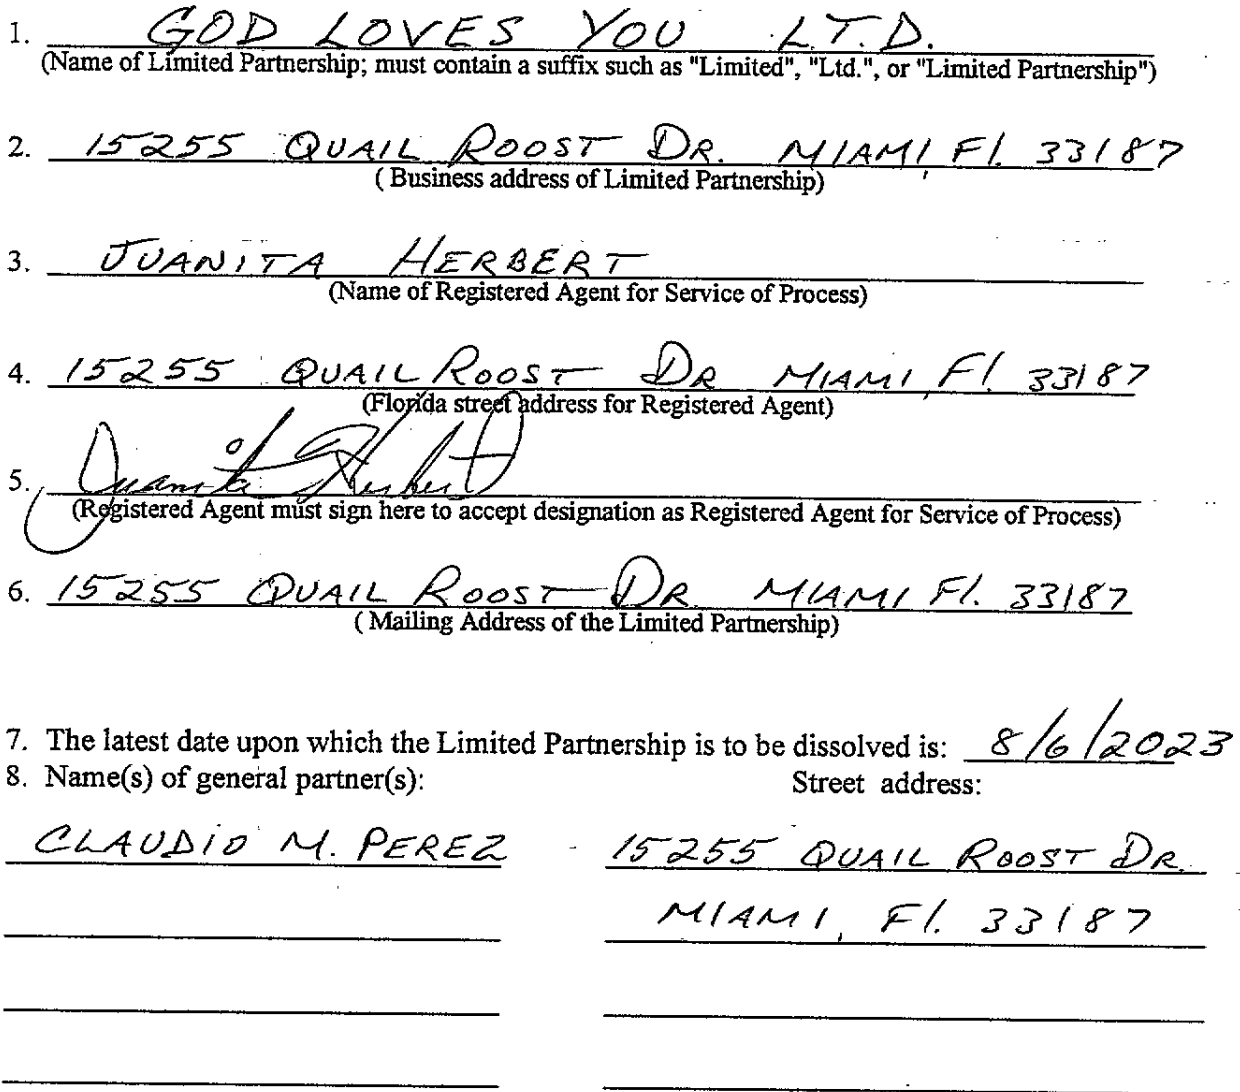 1. GOD LOVES YOU L.T.D.
(Name of Limited Partnership; must contain a suffix such as "Limited", "Ltd.", or "Limited Partnership")
2. 15255 QUAIL ROOST DR. MIAMI, Fl. 33187
( Business address of Limited Partnership)
3. JUANITA HERBERT
(Name of Registered Agent for Service of Process)
4. 15255 QUAIL ROOST DR MIAMI, Fl. 33187
(Florida street address for Registered Agent)
5. Juanita Herbert
(Registered Agent must sign here to accept designation as Registered Agent for Service of Process)
6. 15255 QUAIL ROOST DR MIAMI Fl. 33187
( Mailing Address of the Limited Partnership)
7. The latest date upon which the Limited Partnership is to be dissolved is: 8/6/2023
8. Name(s) of general partner(s): Street address:
CLAUDIO M. PEREZ 15255 QUAIL ROOST DR.
MIAMI, Fl. 33187